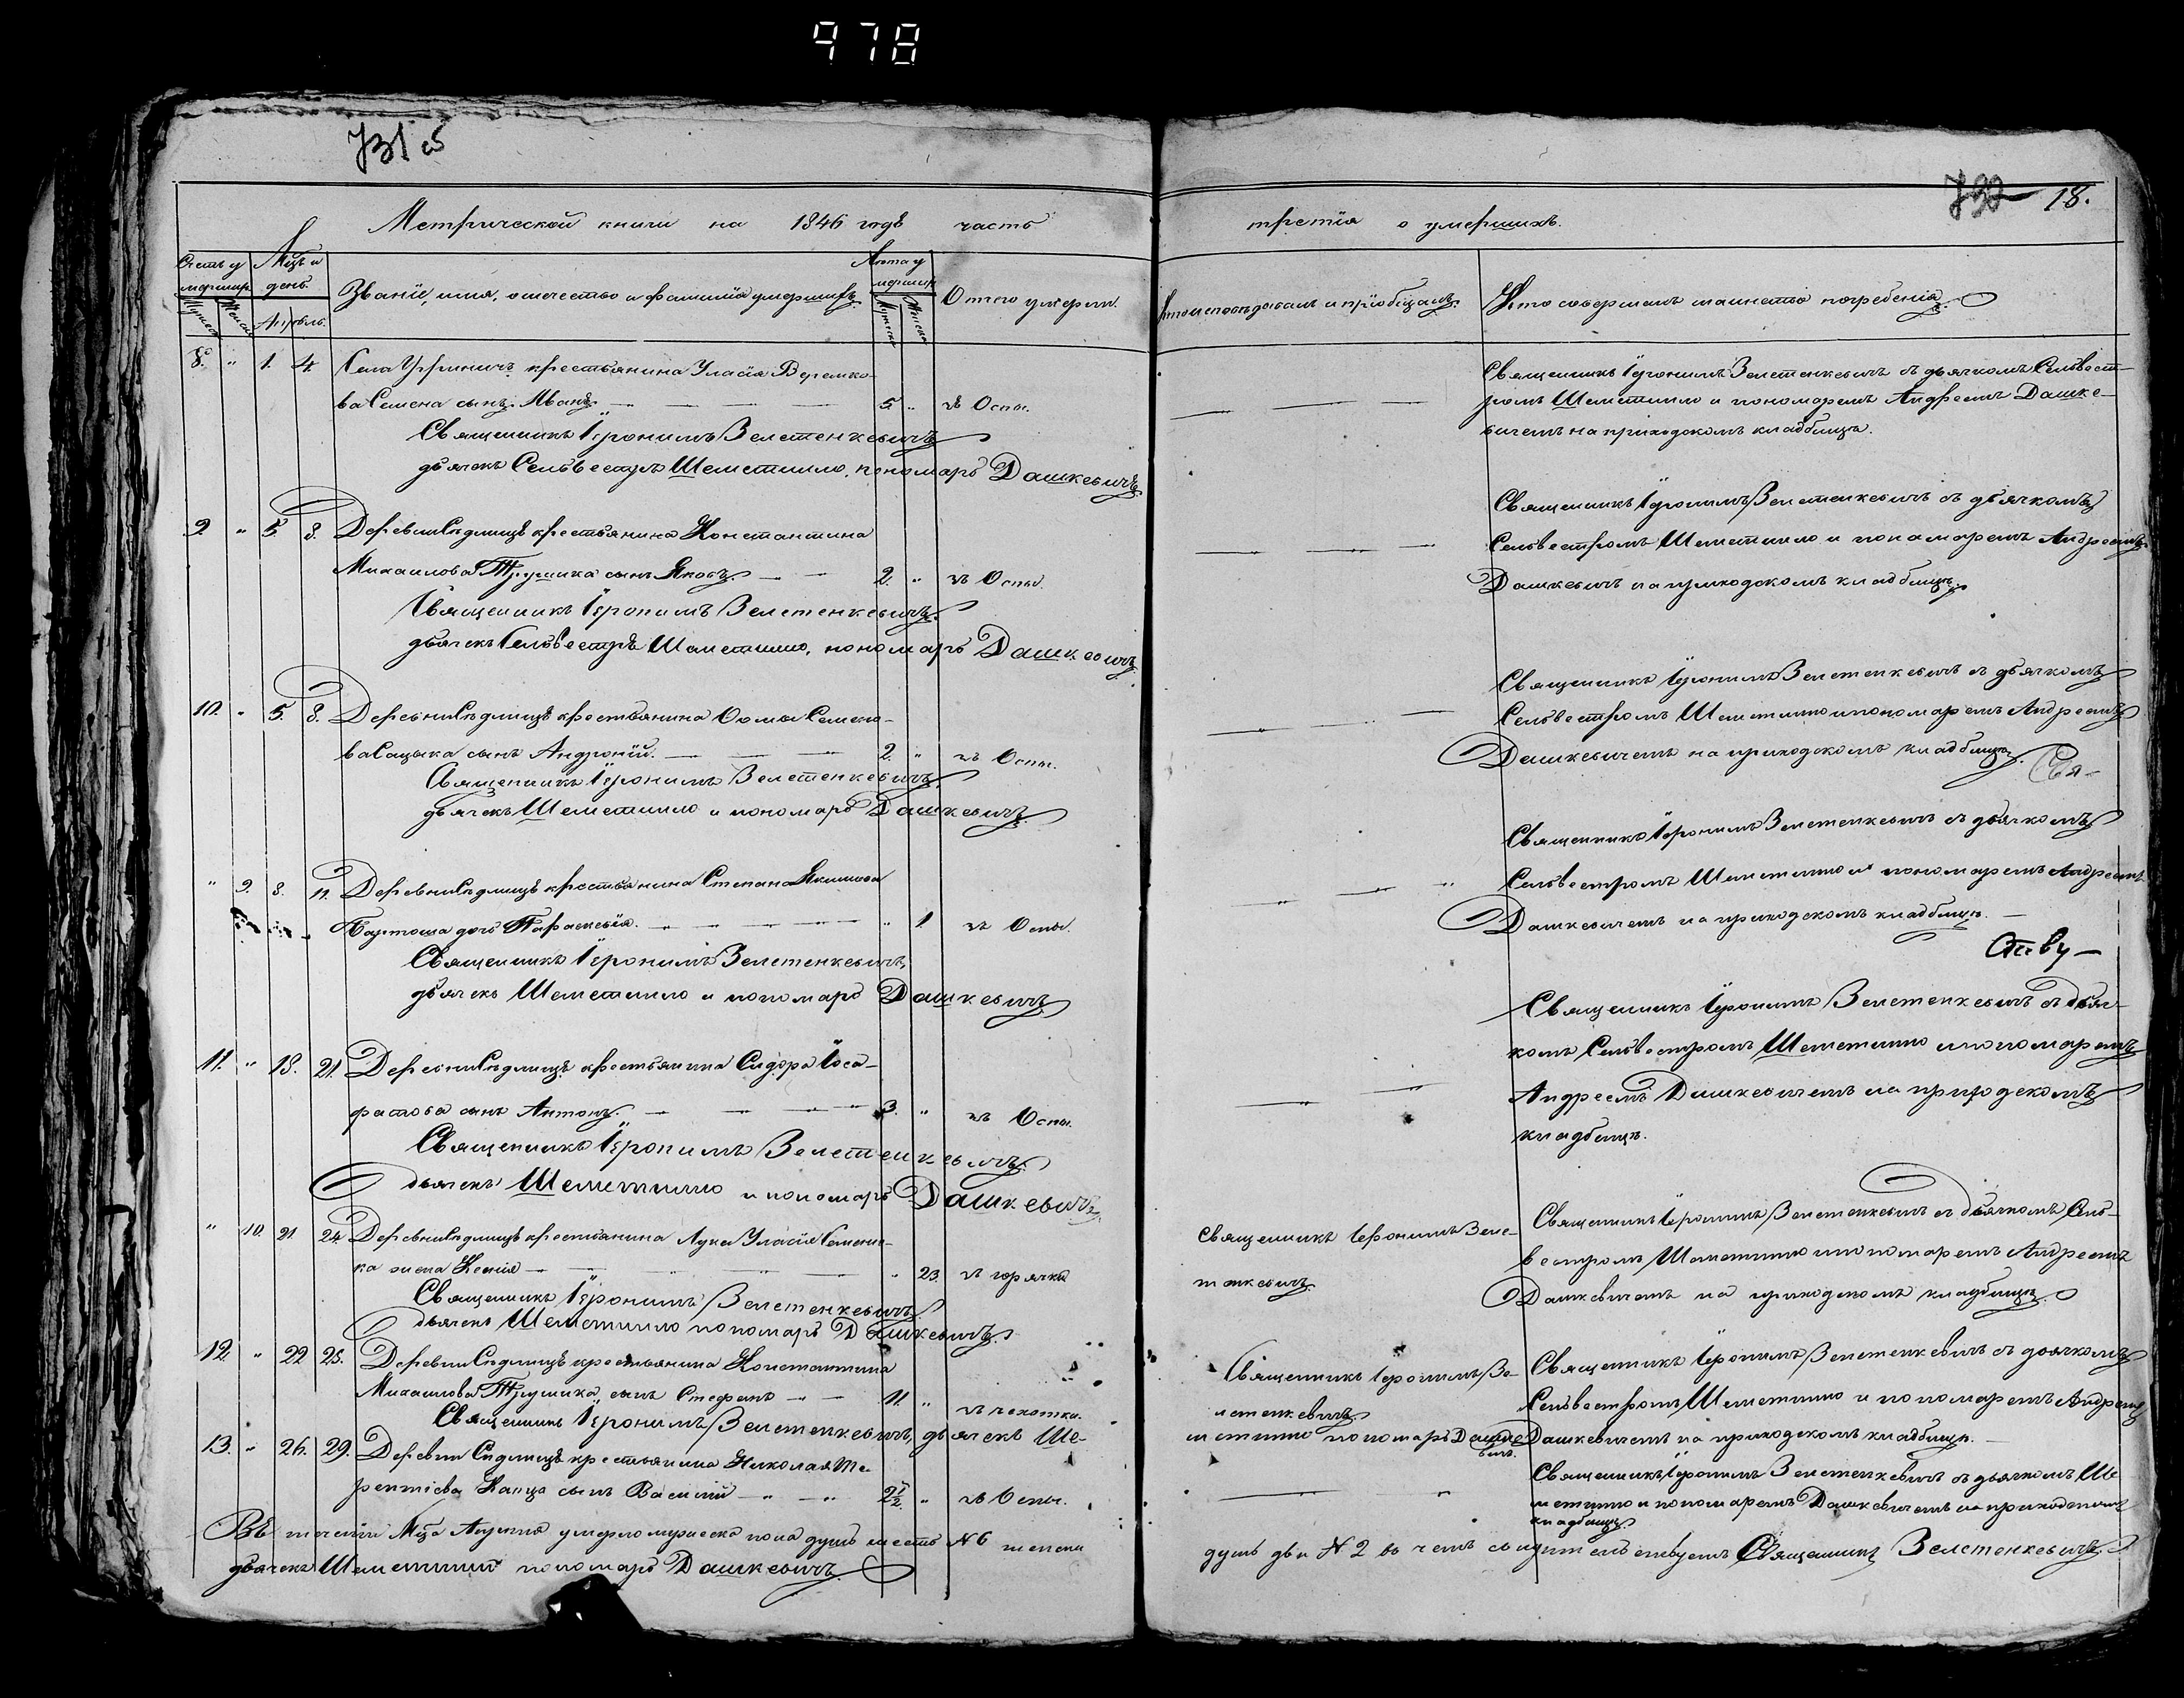 978
731 об
732 18.
Метрической книги на 1846 годъ часть
третія о умершихъ.
Счетъ у
мершихъ
Мужеска
Женска
Мѣсяцъ и
день.
Апрѣль.
Званіе, имя, отчество и фамилія умершихъ.
Лѣта у
мершихъ
Мужеска
Женска
Отчего умерли.
Кто исповѣдовалъ и пріобщалъ.
Кто совершалъ таинство погребенія
8. " 1. 4. Села крестьянина Уласія Веремко-
ва Семена сынъ Иванъ. 5. " въ Оспы.
Священникъ Іеронимъ Зелетенкевичъ
дьячекъ Сельвестръ Шеметилло, пономарь Дашкевичъ
Священникъ Іеронимъ Зелетенкевичъ съ дьячкомъ Сельвест-
ромъ Шеметилло и пономаремъ Андреемъ Дашке-
вичемъ на приходскомъ кладбищѣ.
9. " 5. 8. Деревни Сѣдлищъ крестьянина Константина
Михаилова Трушика сынъ Яковъ. 2. " въ Оспы.
Священникъ Іеронимъ Зелетенкевичъ
дьячекъ Сельвестръ Шеметилло, пономарь Дашкевичъ
Священникъ Іеронимъ Зелетенкевичъ съ дьячкомъ
Сельвестромъ Шеметилло и пономаремъ Андреемъ
Дашкевичъ на приходскомъ кладбищѣ.
10. " 5. 8. Деревни Сѣдлищъ крестьянина Ѳомы Семено-
ва Сацыка сынъ Андроній. 2. " въ Оспы.
Священникъ Іеронимъ Зелетенкевичъ
дьячекъ Шеметилло и пономарь Дашкевичъ
Священникъ Іеронимъ Зелетенкевичъ съ дьячкомъ
Сельвестромъ Шеметилло и пономаремъ Андреемъ
Дашкевичемъ на приходскомъ кладбищѣ.
Свя-
" 9. 8. 11. Деревни Сѣдлищъ крестьянина Степана Якимова
Бартоша дочь Параскевія. " 1. въ Оспы.
Священникъ Іеронимъ Зелетенкевичъ,
дьячекъ Шеметилло и пономарь Дашкевичъ
Священникъ Іеронимъ Зелетенкевичъ съ дьячкомъ
Сельвестромъ Шеметилло и пономаремъ Андреемъ
Дашкевичемъ на приходскомъ кладбищѣ.
11. " 18. 21. Деревни Сѣдлищъ крестьянина Сидора Іоса-
фатова сынъ Антонъ. 3. " въ Оспы.
Священникъ Іеронимъ Зелетенкевичъ
дьячекъ Шеметилло и пономарь Дашкевичъ
Священникъ Іеронимъ Зелетенкевичъ съ дьяч-
комъ Сельвестромъ Шеметилло и пономаремъ
Андреемъ Дашкевичемъ на приходскомъ
кладбищѣ.
" 10. 21 24. Деревни Сѣдлищъ крестьянина Луки Уласія
жена Ксенія " 23. въ горячки
Священникъ Іеронимъ Зелетенкевичъ
дьячекъ Шеметилло пономарь Дашкевичъ
Священникъ Іеронимъ Зеле-
тенкевичъ.
Священникъ Іеронимъ Зелетенкевичъ съ дьячкомъ Сель-
вестромъ Шеметилло и пономаремъ Андреемъ
Дашкевичемъ на приходскомъ кладбищѣ
12. " 22 25. Деревни Сѣдлищъ крестьянина Константина
Михаилова Трушика сынъ Стефанъ 11. " въ чехотки.
Священникъ Іеронимъ Зелетенкевичъ, дьячекъ Ше-
метилло пономарь Дашке-
вичъ.
Священникъ Іеронимъ Зе-
летенкевичъ
Священникъ Іеронимъ Зелетенкевичъ съ дьячкомъ
Сельвестромъ Шеметилло и пономаремъ Андреемъ
Дашкевичемъ на приходскомъ кладбищѣ.
13. " 26. 29. Деревни Сѣдлищъ крестьянина Николая Те-
рентіева Канца сынъ Василій 2½ " въ Оспы.
Священникъ Іеронимъ Зелетенкевичъ съ дьячкомъ Ше-
метилло и пономаремъ Дашкевичемъ на приходскомъ
кладбищѣ.
Въ теченіи Мѣсяца Апреля умерло мужеска пола душъ шесть №6 женска
душъ двѣ №2 въ чемъ свидѣтельствуетъ Священникъ Зелетенкевичъ
дьячекъ Шеметилло пономарь Дашкевичъ